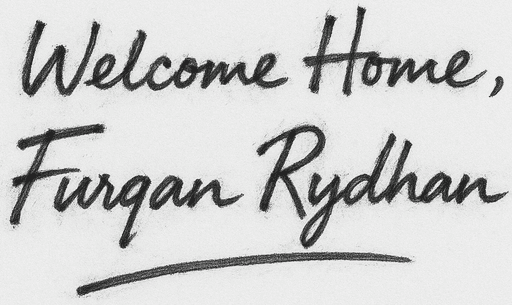 Welcome Home,
Furqan Rydhan